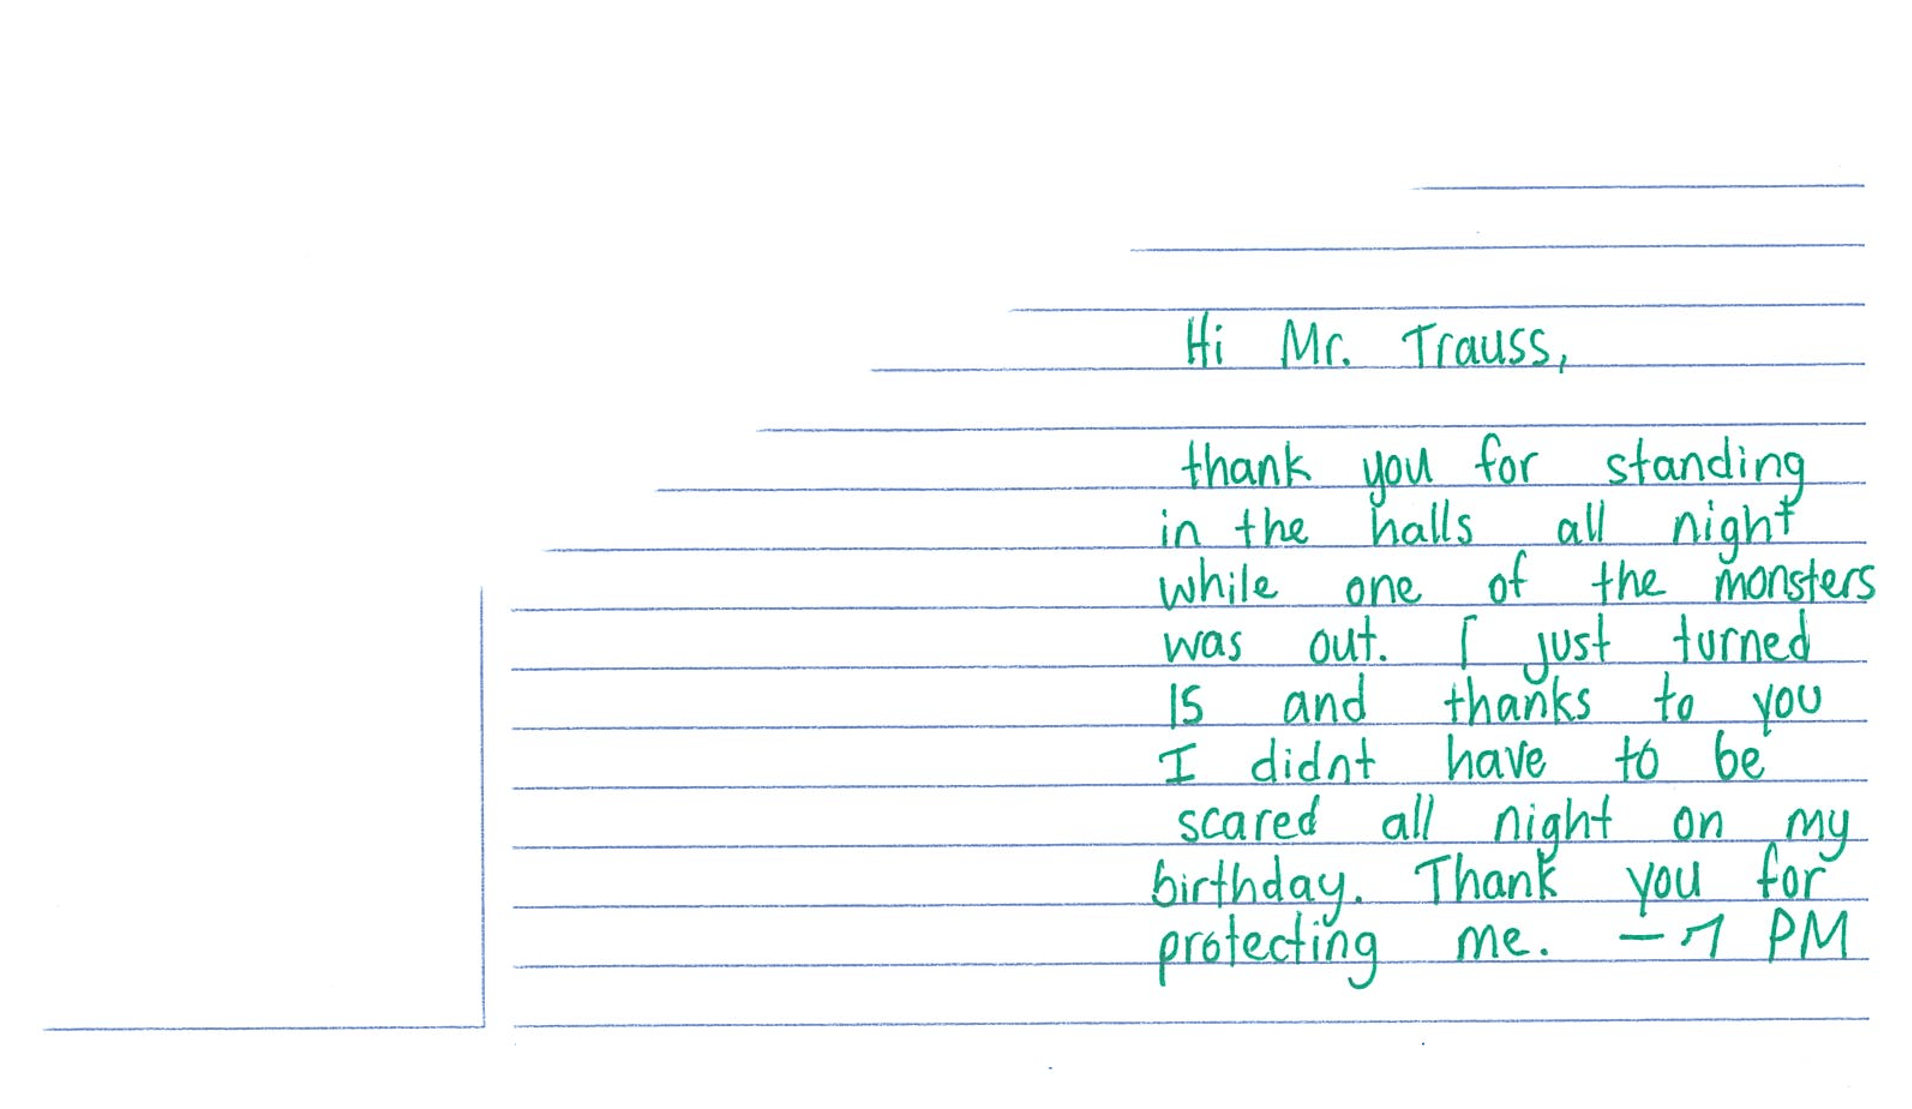 Hi Mr. Trauss,
thank you for standing
in the halls all night
while one of the monsters
was out. I just turned
15 and thanks to you
I didnt have to be
scared all night on my
birthday. Thank you for
protecting me. - 1 PM